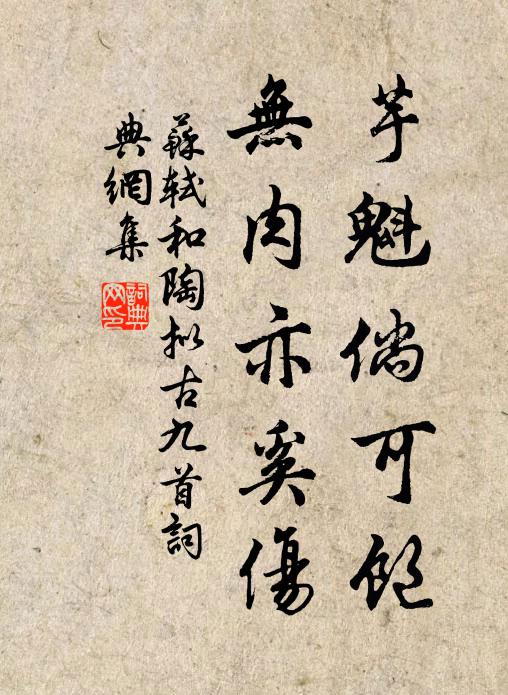 芋魁倘可飽
無肉亦奚傷
蘇軾和陶擬古九首詞
典網集
詞典網印